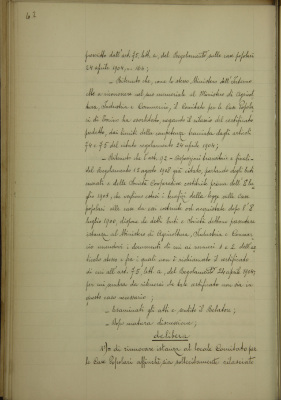 62
prescritto dall'art. 75, lett. a, del Regolamento sulle case popolari
24 aprile 1904, n. 164;
– Ritenuto che, come lo stesso Ministero dell'Interno
ebbe a riconoscere nel suo memoriale al Ministero di Agricol-
tura, Industria e Commercio, il Comitato per le Case Popola-
ri di Torino ha
negando il rilascio del certificato
predetto, dai limiti della competenza
dagli articoli
74 e 75 del citato regolamento 24 aprile 1904;
– Ritenuto che l'art. 92 – Disposizioni transitorie e finali –
del Regolamento 12 agosto 1908 già citato, parlando degli Isti-
tuti morali e delle Società Cooperative costituite prima dell'
luglio 1908, che vogliano
i benefici della legge sulle Case
popolari alle case da esse costruite od acquistate dopo l'
luglio 1900, dispone che detti Enti e Società debbano presentare
istanza al Ministero di Agricoltura, Industria e Commer-
cio
i documenti di cui ai numeri 1 e 2 dell'ar-
ticolo stesso e fra i quali non è richiamato il certificato
di cui all'art. 75, lett. a, del Regolamento 24 aprile 1904,
per cui sembra che
certificato non sia in
questo caso necessario;
– Esaminati gli atti e sentito il Relatore;
– Dopo matura discussione;
delibera
1º/ di rinnovare istanza al locale Comitato per
le Case Popolari affinchè sia sollecitamente rilasciato